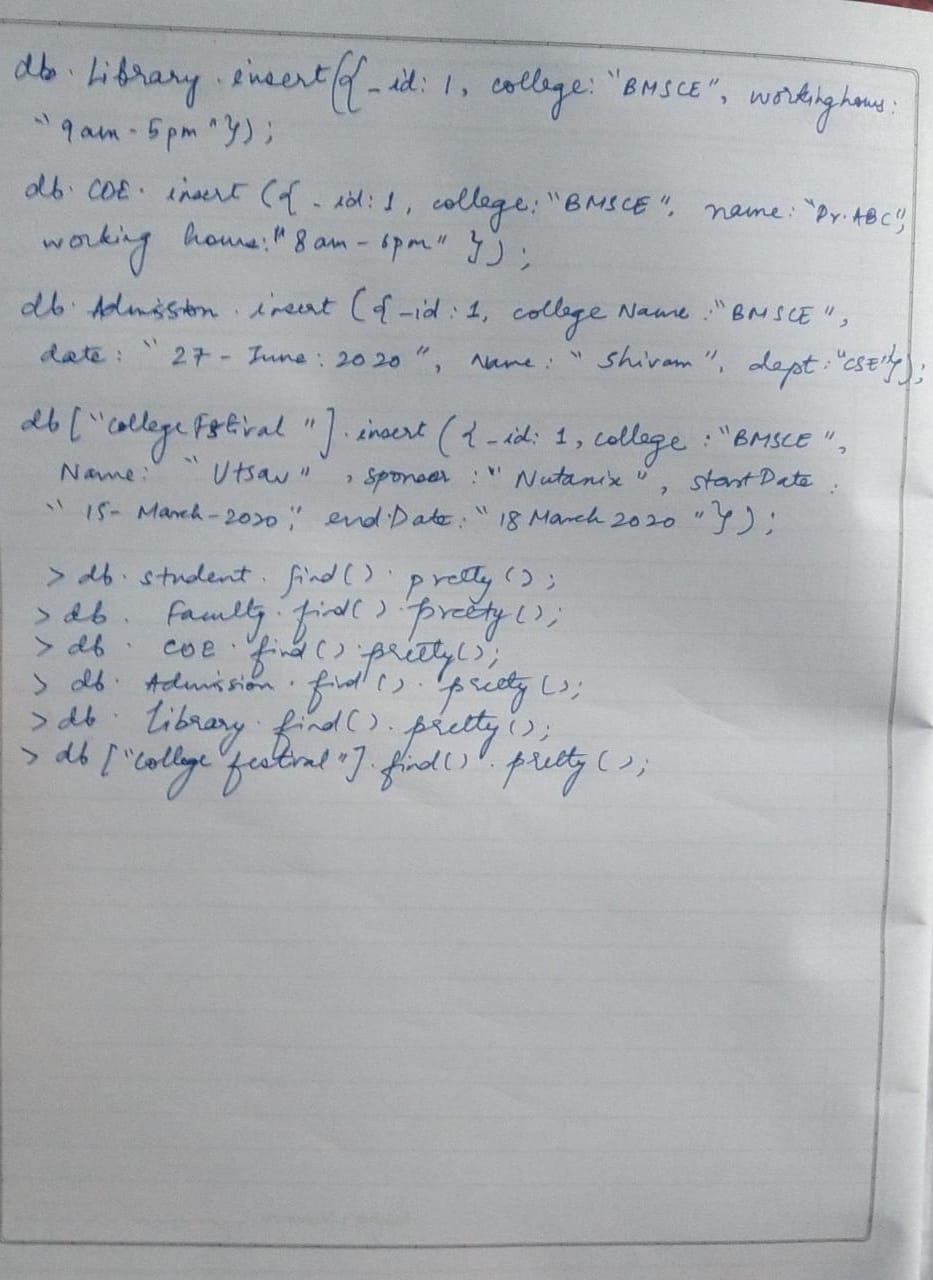 db. Library. insert({_id: 1, college: "BMSCE", workinghours:
"9am-5pm"});
db. COE. insert ({_id:1, college:"BMSCE", name: "Dr.ABC",
working hours:"8am-6pm" });
db. Admission. insert ({_id: 1, college Name :"BMSCE",
date: "27-June:2020", name: "Shivam", dept:"CSE"});
db["college Fstival"]. insert ({_id: 1, college :"BMSCE",
Name: "Utsav", sponsor :"Nutanix", start Date :
"15-March-2020", end Date: "18 March 2020"});
> db. student. find(). pretty();
> db. Faculty. find(). preety();
> db. COE. find(). pretty();
> db. Admission. find(). pretty();
> db. Library. find(). pretty();
> db ["College festival"]. find(). pretty();